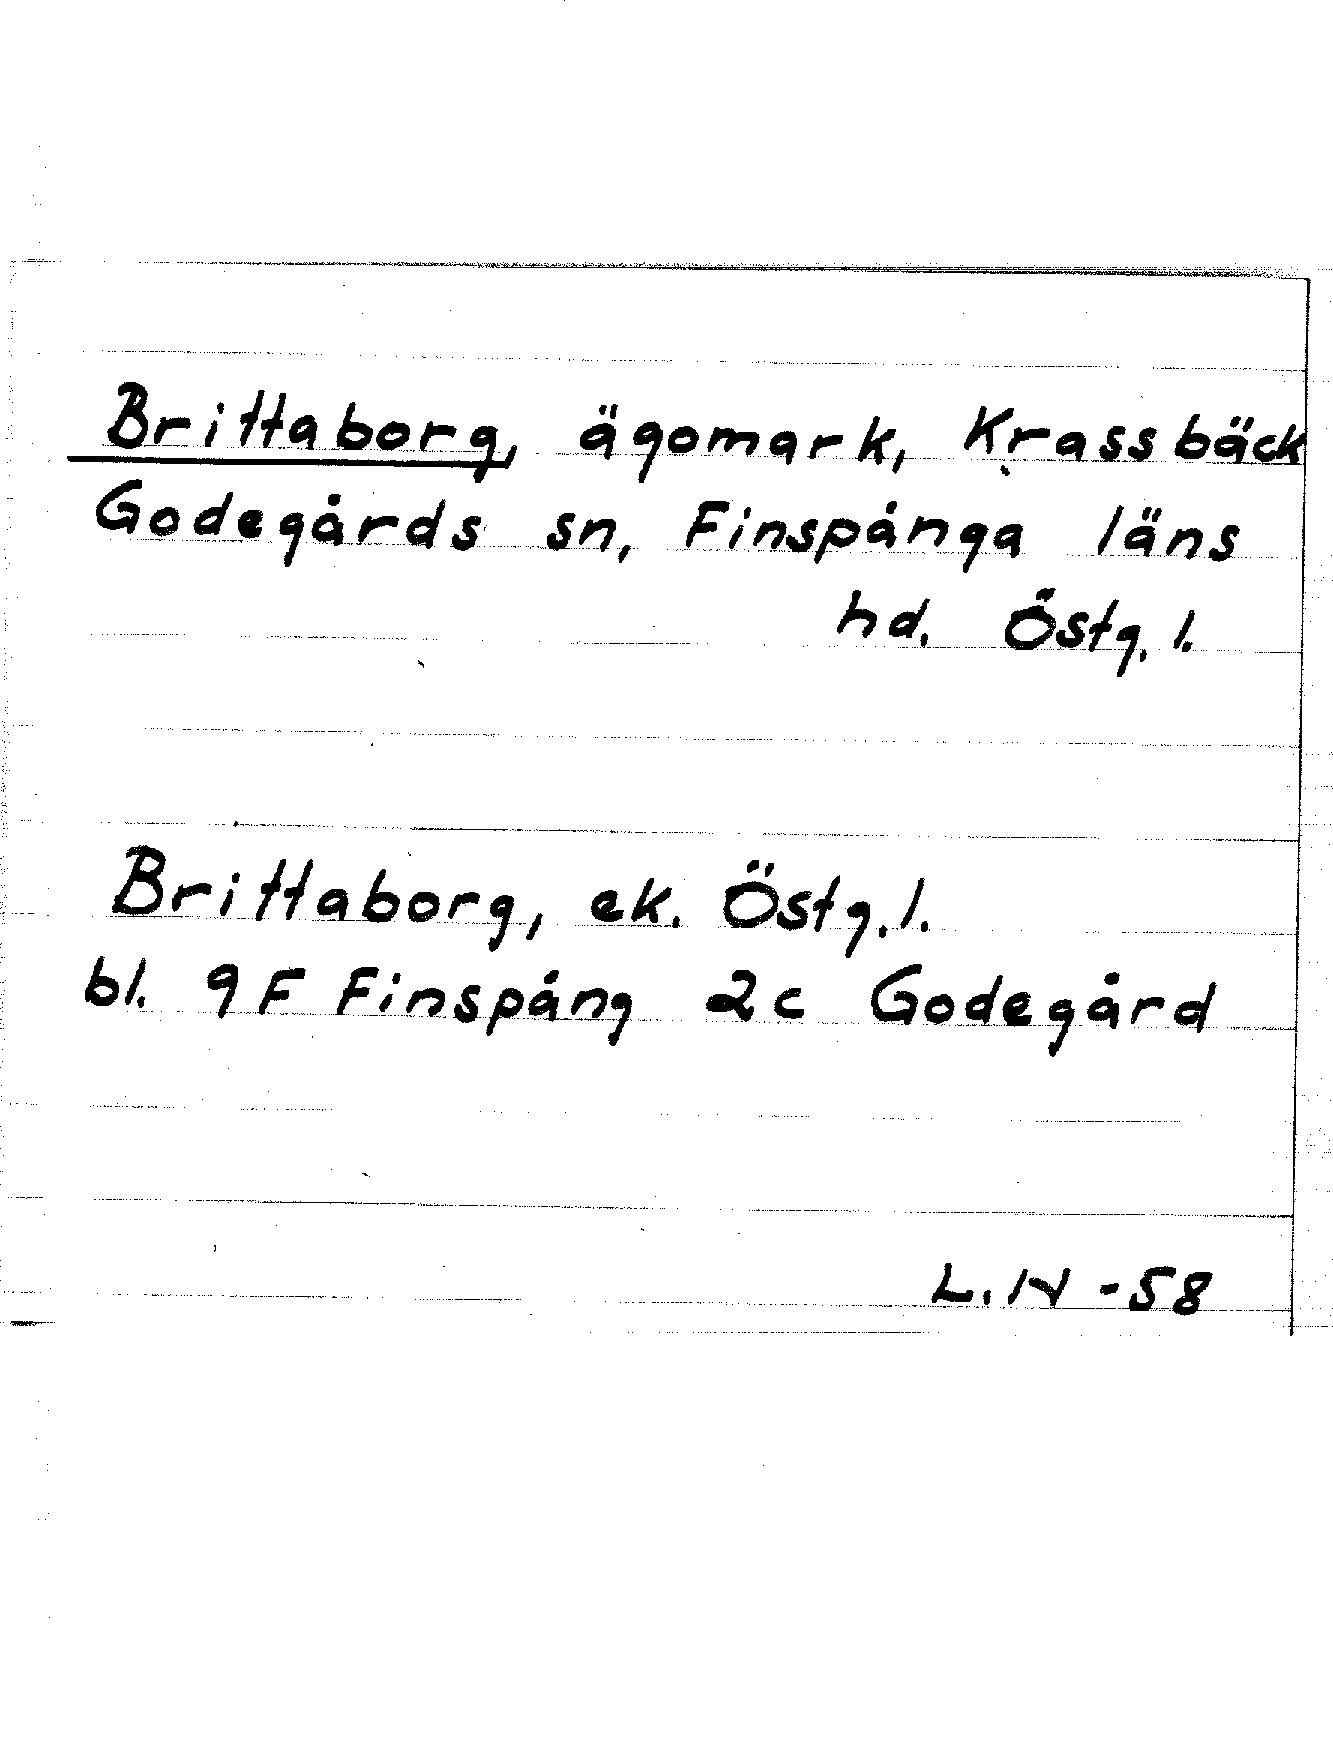 Brittaborg, ägomark, Krassbäck
Godegårds sn, Finspånga läns
hd. Östg. l.
Brittaborg, ek. Östg. l.
bl. 9F Finspång 2c Godegård
L. N -58